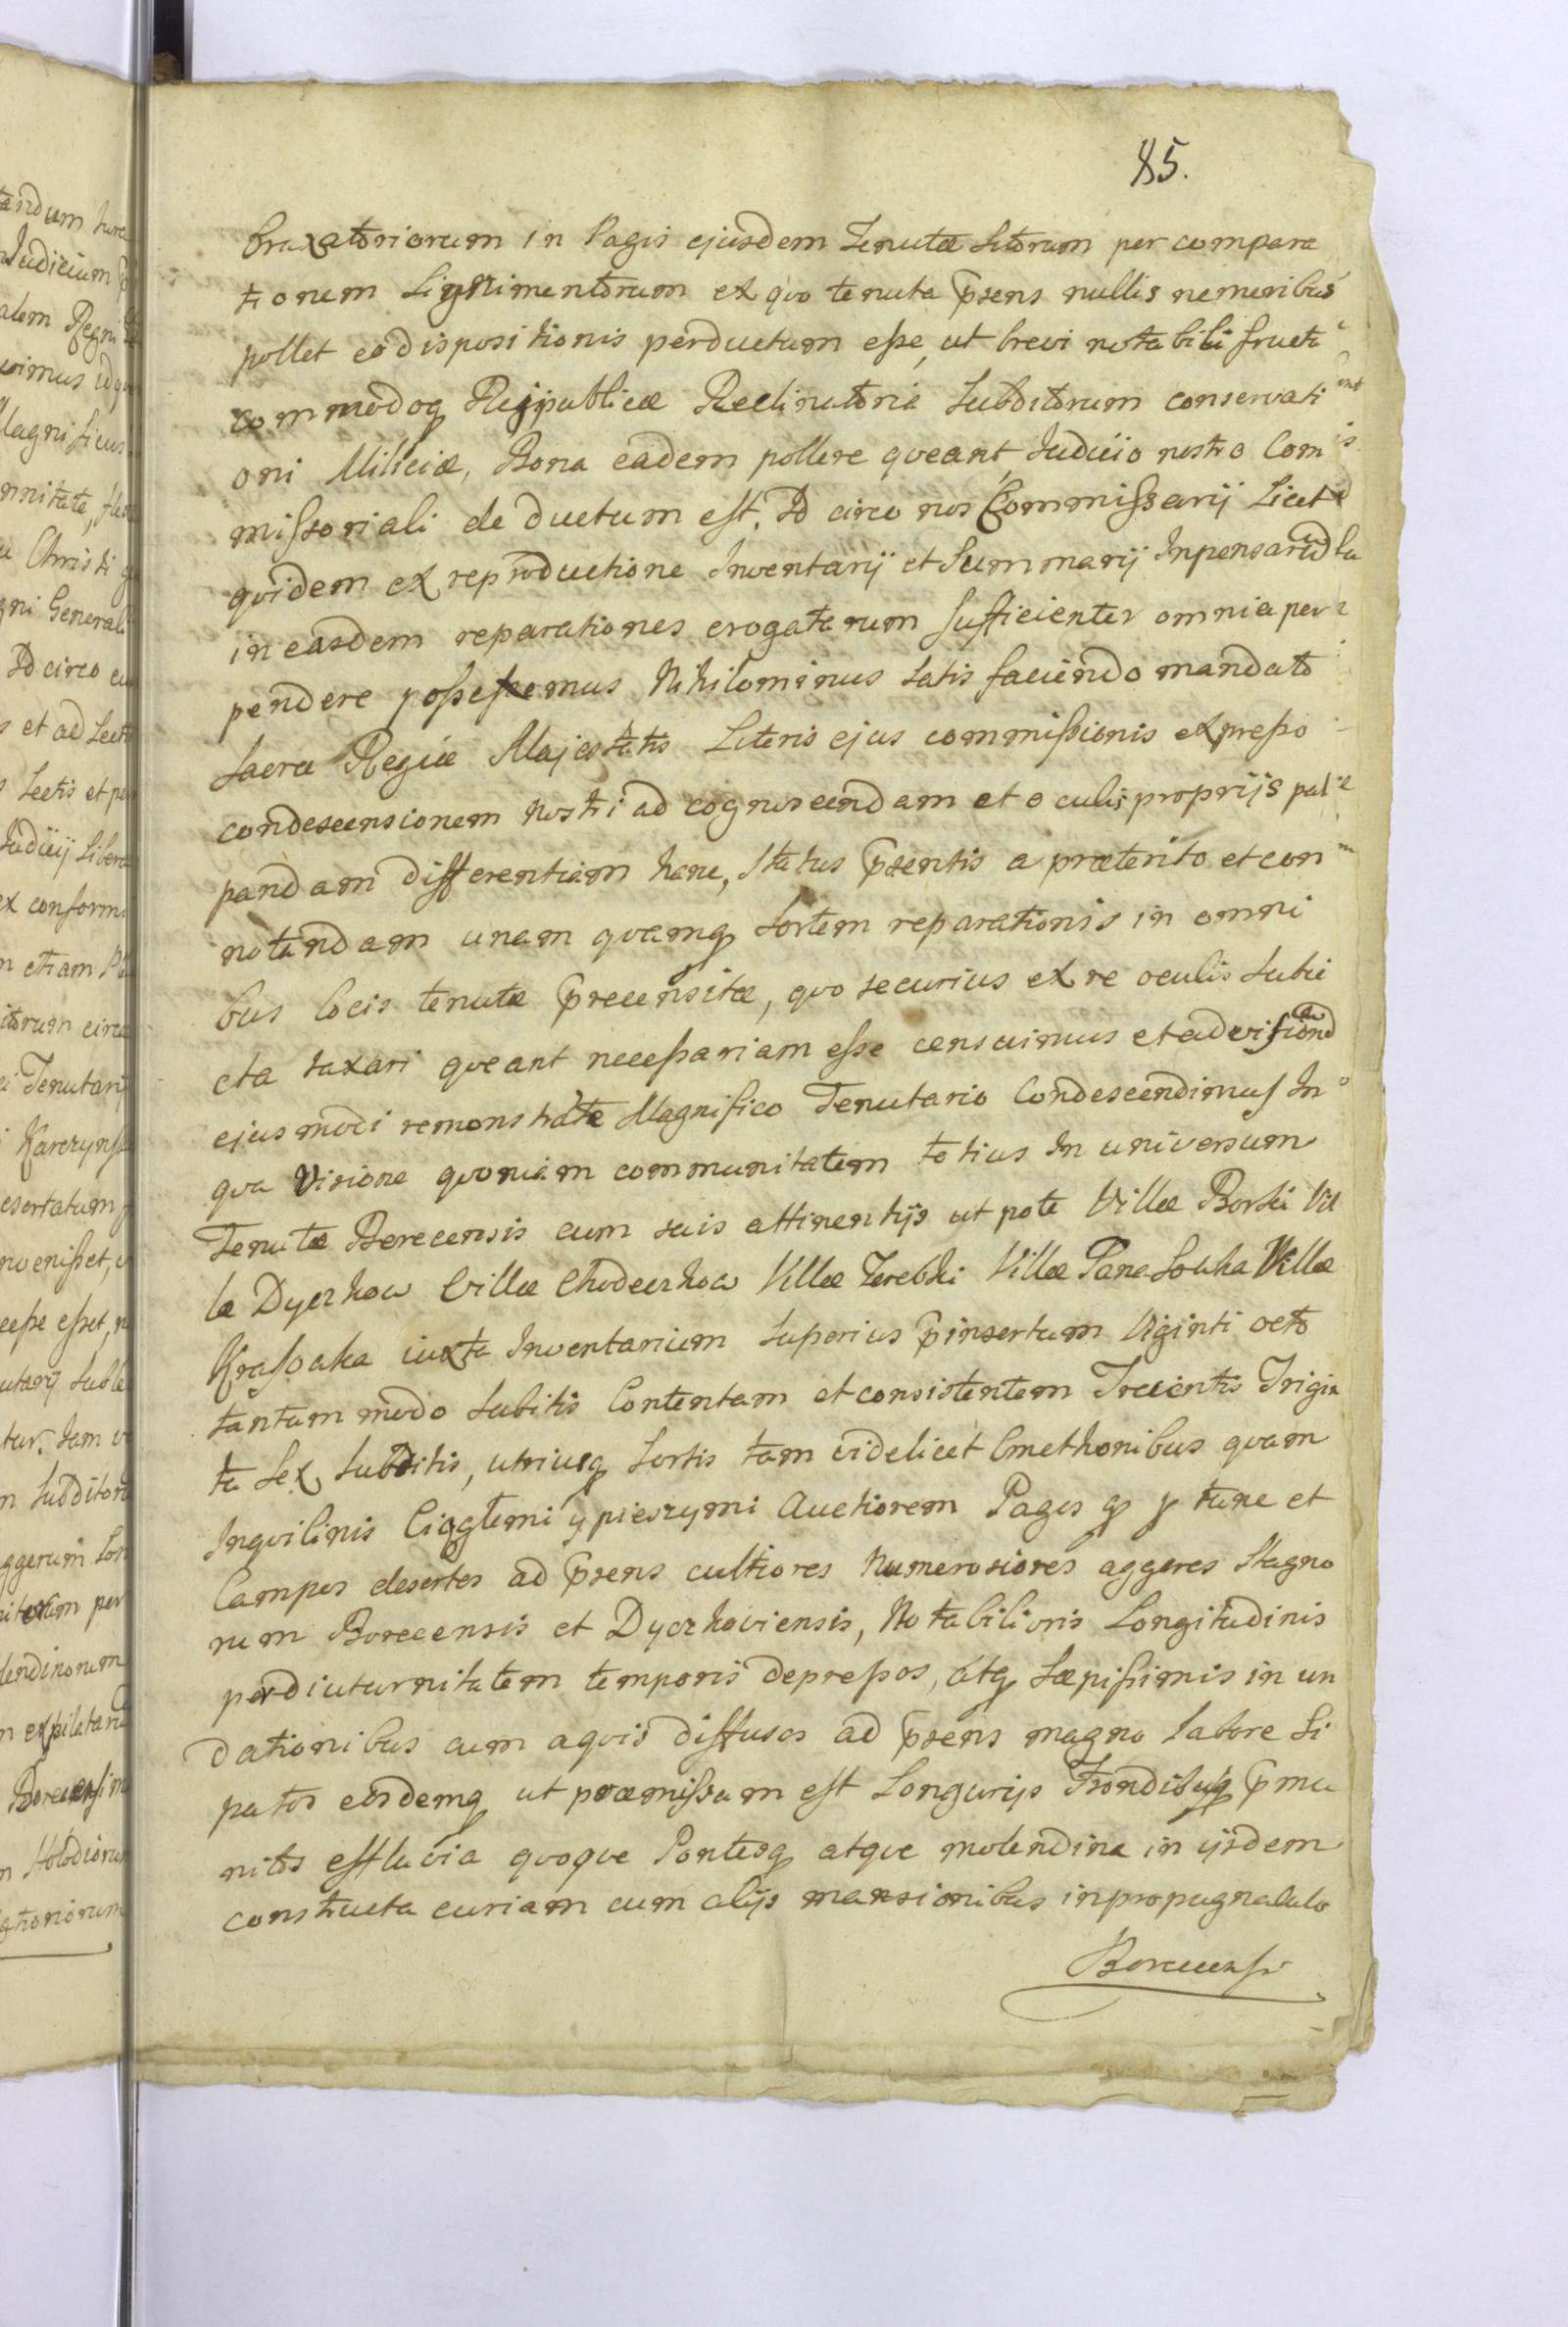 85.
braxatoriorum in Pagis ejusdem Tenutæ sitorum per compara
tionem Lignimentorum ex quo tenuta p̄sens nullis nemoribus
pollet eo dispositionis perductum esse, ut brevi notabili fructu
commodoq Reipublicæ Reclinatoria Subditorum conservati
oni Miliciæ, Bona eadem pollere queant, Judicio nostro Com
missoriali deductum est. Id circo nos Commissarij Licet
quidem ex reproductione Inventarij et Summarij Inpensarum
in easdem reparationes erogatarum sufficienter omnia per
pendere possemus Nihilominus satis faciendo mandato
Sacræ Regiæ Majestatis Literis ejus commissionis expresso
condescensionem nostri ad cognoscendam et oculis proprijs pal
pandam differentiam hanc, Status p̄sentis a præterito et con
notandam unam quamq sortem reparationis in omni
bus locis tenutæ p̄recensitæ, quo securius ex re oculis subie
cta taxari queant necessariam esse censuimus et ad visionem
ejusmodi remonstratæ Magnifico Tenutario Condescendimus In
qua Visione quoniam communitatem totius in universum
Tenutæ Borecensis cum suis attinentijs ut pote Villæ Borki Vil
læ Dyczkow Villæ Chodeczkow Villæ Zerebki Villæ Panasowka Villæ
Krasowka iuxta Inventarium superius p̄insertum Viginti octo
tantum modo subitis Contentam et consistentem Trecentis Trigin
ta Sex Subditis, utriusq Sortis tam videlicet Cmethonibus quam
Inquilinis Ciągłemi y pieszymi Auctiorem Pagos q p tunc et
Campos desertos ad p̄sens cultiores Numerosiores aggeres Stagno
rum Borecensis et Dyczkoviensis, Notabilioris Longitudinis
per diuturnitatem temporis depressos, atq sæpissimis in un
dationibus cum aquis diffusos ad p̄sens magno labore si
patos eosdemq ut præmissum est Longurijs Frondibusq p̄mu
nitos effluvia quoque Pontesq atque molendina in ijsdem
constructa curiam cum alijs mansionibus in propugnaculo
Borecensi